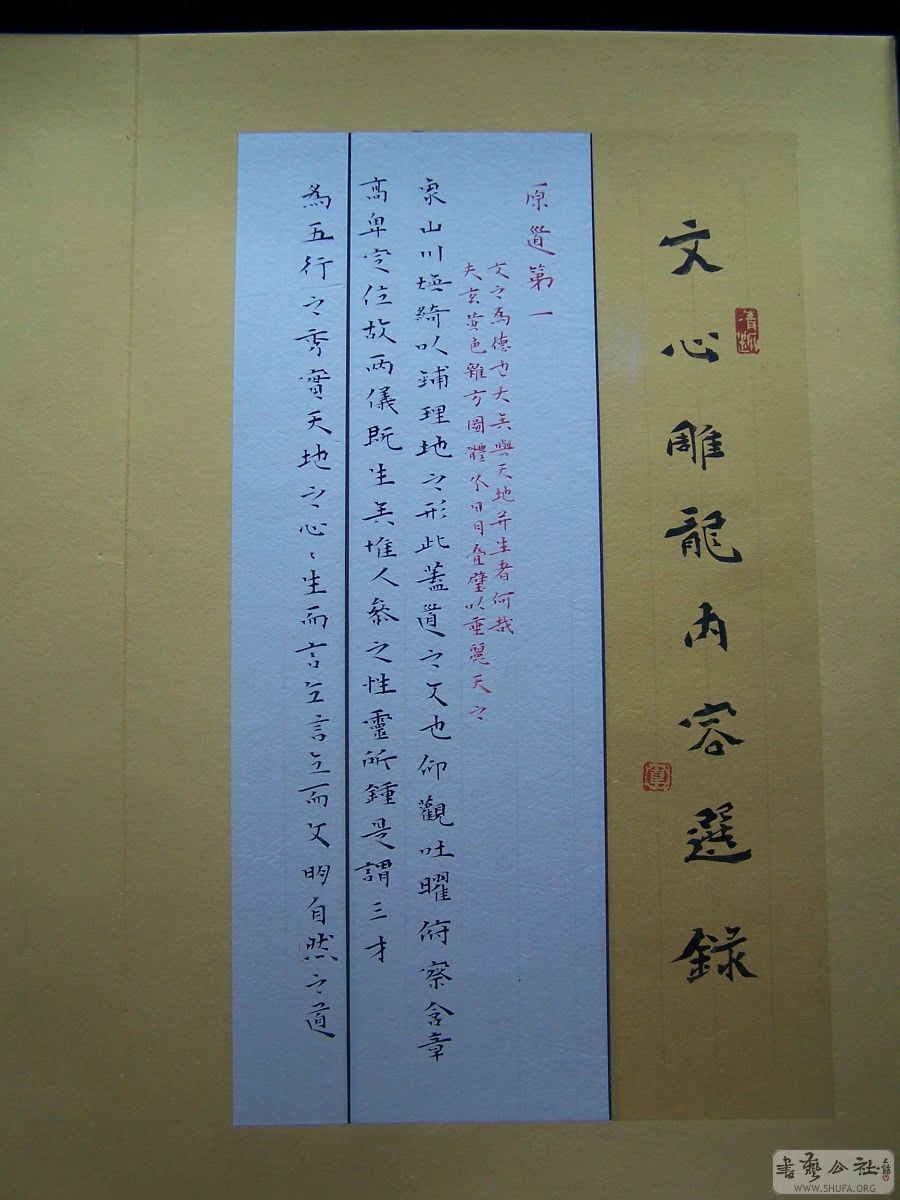 文心雕龍內容選錄
原道第一
文之為德也大矣與天地并生者何哉
夫玄黃色雜方圓體分日月疊璧以垂麗天之
象山川煥綺以鋪理地之形此蓋道之文也仰觀吐曜俯察含章
高卑定位故兩儀既生矣惟人參之性靈所鍾是謂三才
為五行之秀實天地之心〻生而言立言立而文明自然之道
書藝公社
WWW.SHUFA.ORG